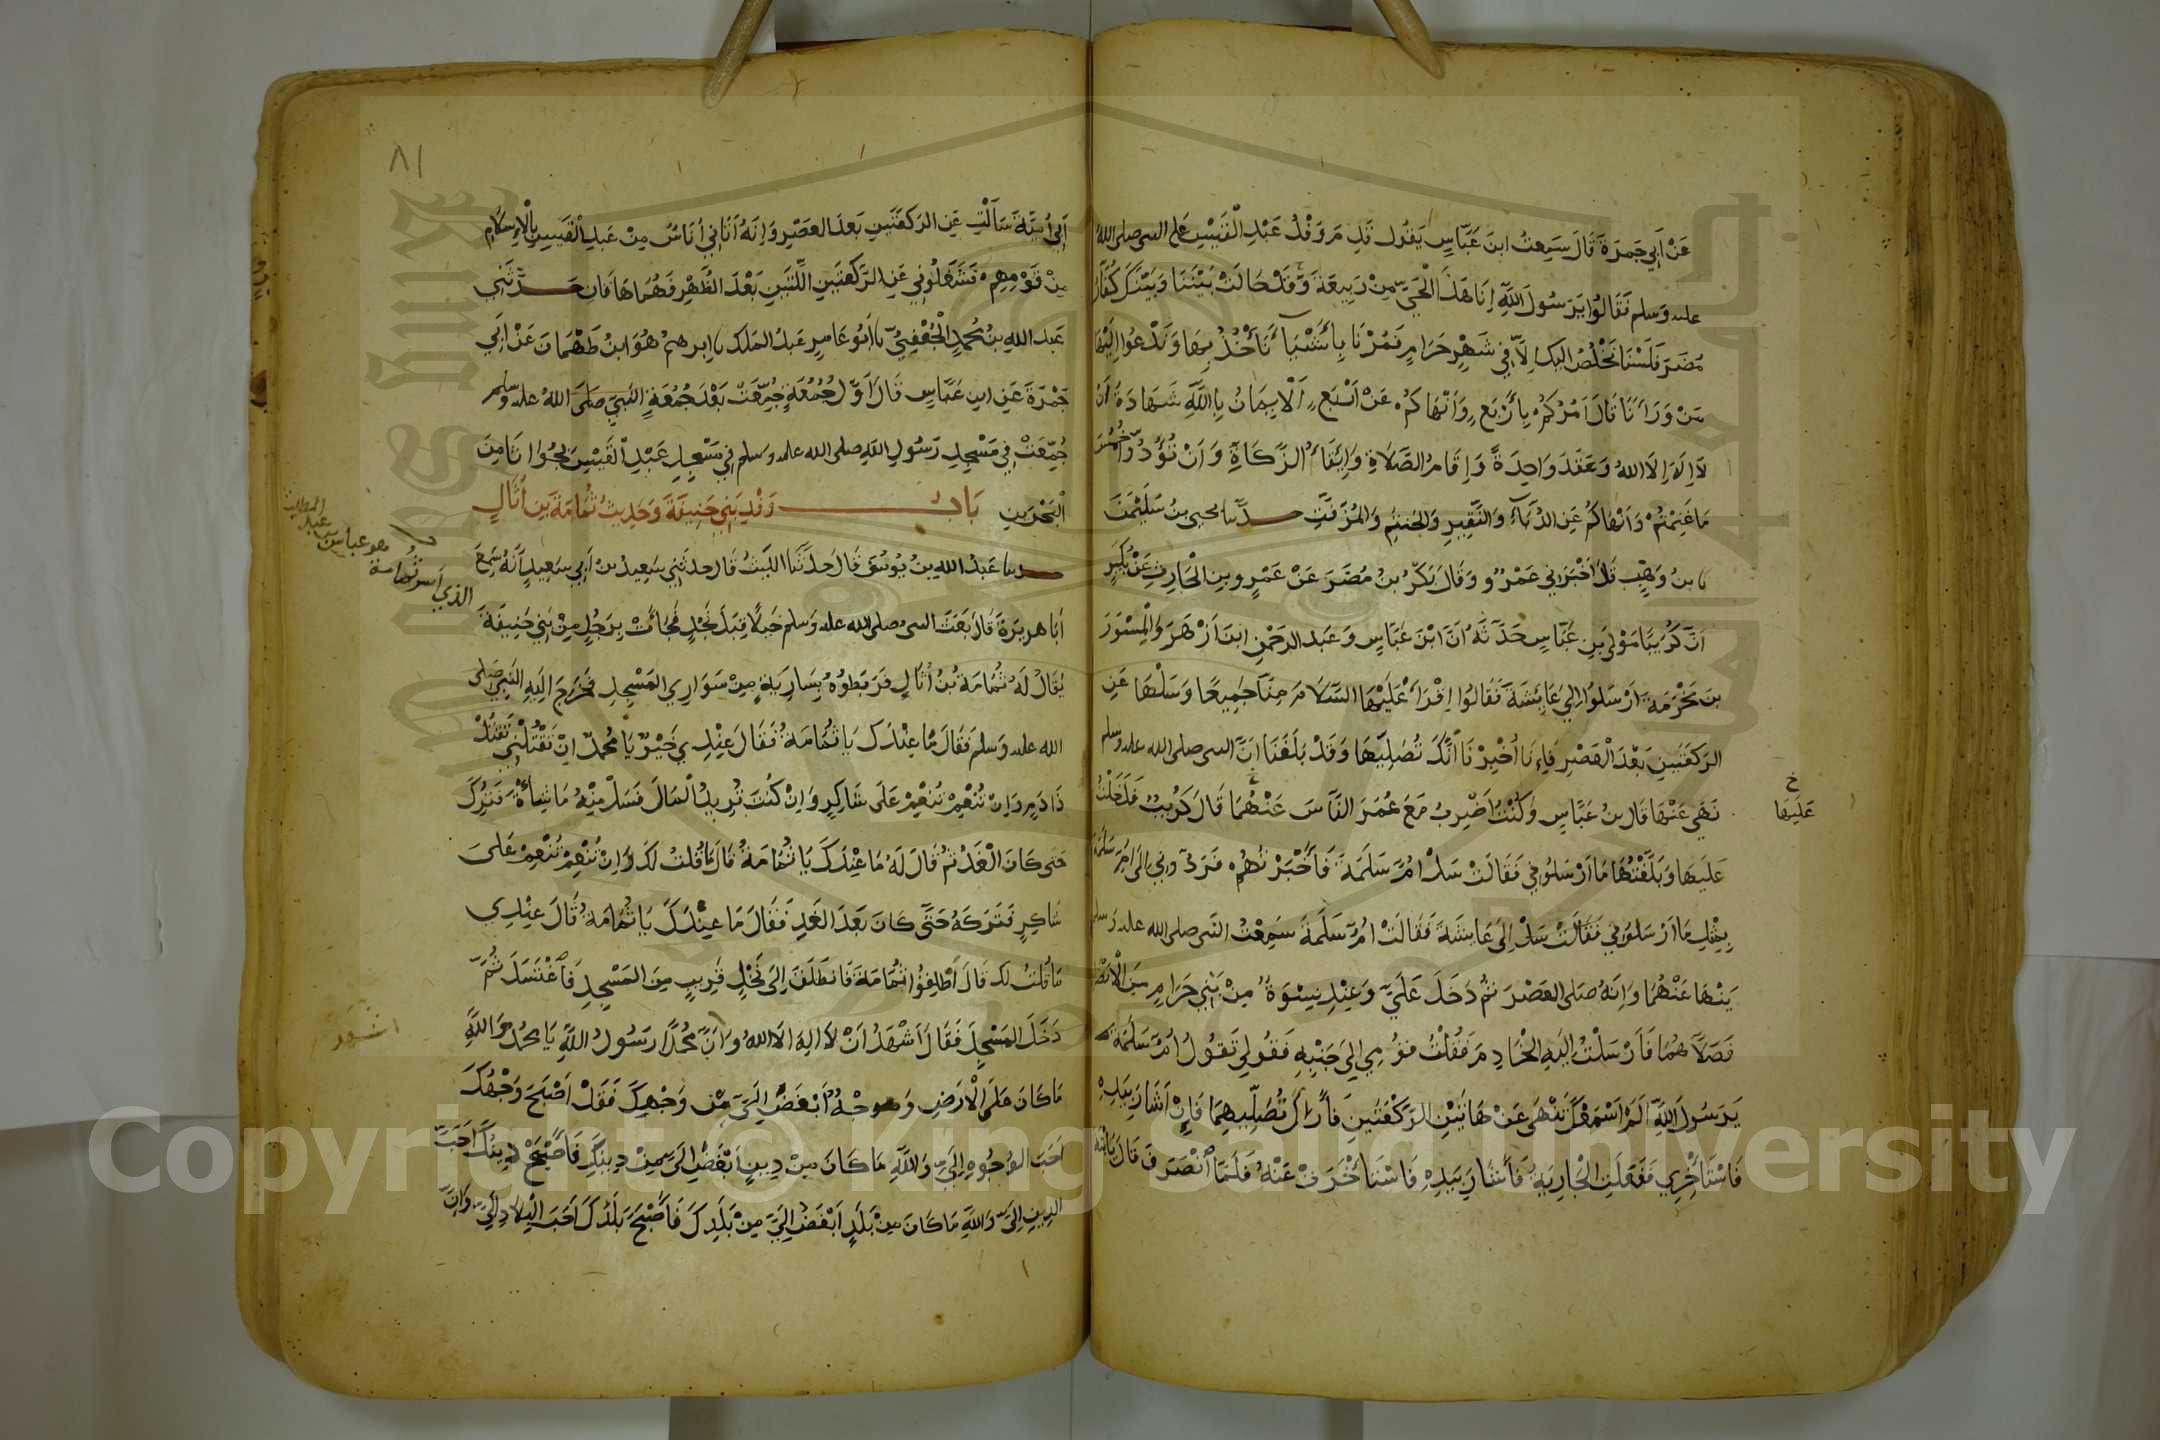 عَنْ أَبِي جَمْرَةَ قَالَ سَمِعْتُ ابنَ عَبَّاسٍ يَقُولُ قَدِمَ وَفْدُ عَبْدِ الْقَيْسِ عَلَى النبي صلى الله
عليه وسلم فَقَالُوا يَرَسُولَ اللَّهِ إِنَّا هَذَا الْحَيَّ مِنْ رَبِيعَةَ وَقَدْ حَالَتْ بَيْنَنَا وَبَيْنَكَ كُفَّارُ
مُضَرَ فَلَسْنَا نَخْلُصُ إِلَيْكَ إِلَّا فِي شَهْرٍ حَرَامٍ فَمُرْنَا بِأَشْيَاءَ نَأْخُذُ بِهَا وَنَدْعُوا إِلَيْهَا
مَنْ وَرَاءَنَا قَالَ آمُرُكُمْ بِأَرْبَعٍ وَأَنْهَاكُمْ عَنْ أَرْبَعٍ الْإِيمَانُ بِاللَّهِ شَهَادَةُ أَنْ
لَا إِلَهَ إِلَّا اللهُ وَعَقَدَ وَاحِدَةً وَإِقَامُ الصَّلَاةِ وَإِيتَاءُ الزَّكَاةِ وَأَنْ تُؤَدُّوا خُمُسَ
مَا غَنِمْتُمْ وَأَنْهَاكُمْ عَنِ الدُّبَّاءِ وَالنَّقِيرِ وَالْحَنْتَمِ وَالْمُزَفَّتِ حدثنا يحيى بنُ سُلَيْمَنَ
بنُ وَهْبٍ قَالَ أَخْبَرَنِي عَمْرٌو وَقَالَ بَكْرُ بنُ مُضَرَ عَنْ عَمْرِو بنِ الْحَارِثِ عَنْ بُكَيْرٍ
أَنَّ كُرَيْبًا مَوْلَى بنِ عَبَّاسٍ حَدَّثَهُ أَنَّ ابْنَ عَبَّاسٍ وَعَبدَ الرَّحْمَنِ ابنَ أَزْهَرَ وَالْمِسْوَرَ
بنَ مَخْرَمَةَ أَرْسَلُوا إِلَى عَائِشَةَ فَقَالُوا اقْرَأْ عَلَيْهَا السَّلَامَ مِنَّا جَمِيعًا وَسَلْهَا عَنِ
الرَّكْعَتَيْنِ بَعْدَ الْعَصْرِ فَإِنَّا أُخْبِرْنَا أَنَّكَ تُصَلِّيهَا وَقَدْ بَلَغَنَا أَنَّ النبي صلى الله عليه وسلم
نَهَى عَنْهَا قَالَ بنُ عَبَّاسٍ وَكُنْتُ أَضْرِبُ مَعَ عُمَرَ النَّاسَ عَنْهُمَا قَالَ كُرَيْبٌ فَدَخَلْتُ
عَلَيْهَا
عَلَيْهَا وَبَلَّغْتُهَا مَا أَرْسَلُونِي فَقَالَتْ سَلْ أُمَّ سَلَمَةَ فَأَخْبَرْتُهُمْ فَرَدُّونِي إِلَى أُمِّ سَلَمَةَ
بِمِثْلِ مَا أَرْسَلُونِي فَقَالَتْ سَلْ إِلَى عَائِشَةَ فَقَالَتْ أُمُّ سَلَمَةَ سَمِعْتُ النَّبِي صلى الله عليه وسلم
يَنْهَا عَنْهُمَا وَإِنَّهُ صَلَّى الْعَصْرَ ثُمَّ دَخَلَ عَلَيَّ وَعِنْدِي نِسْوَةٌ مِنْ بَنِي حَرَامٍ مِنَ الْأَنْصَارِ
فَصَلَّاهُمَا فَأَرْسَلْتُ إِلَيْهِ الْخَادِمَ فَقُلْتُ قُومِي إِلَى جَنْبِهِ فَقُولِي تَقُولُ أُمُّ سَلَمَةَ
يَرَسُولَ اللَّهِ أَلَمْ أَسْمَعْكَ تَنْهَى عَنْ هَاتَيْنِ الرَّكْعَتَيْنِ فَأَرَاكَ تُصَلِّيهِمَا فَإِنْ أَشَارَ بِيَدِهِ
فَاسْتَأْخِرِي فَفَعَلَتِ الْجَارِيَةُ فَأَشَارَ بِيَدِهِ فَاسْتَأْخَرَتْ عَنْهُ فَلَمَّا انْصَرَفَ قَالَ يَابْنَةَ
٨١
أَبِي أُمَيَّةَ سَأَلْتِ عَنِ الرَّكْعَتَيْنِ بَعْدَ العَصْرِ وَإِنَّهُ أَتَانِي أُنَاسٌ مِنْ عَبدِ الْقَيْسِ بِالْإِسْلَامِ
مِنْ قَوْمِهِمْ فَشَغَلُونِي عَنِ الرَّكْعَتَيْنِ اللَّتَيْنِ بَعْدَ الظُّهْرِ فَهُمَا هَاتَانِ حدثني
عَبد الله بنُ مُحَمَّدٍ الْجُعْفِيُّ نا أَبُو عَامِرٍ عَبدُ الملك نا إبرهيمُ هُوَ ابنُ طَهْمَانَ عَنْ أَبِي
جَمْرَةَ عَنِ ابنِ عَبَّاسٍ قَالَ أَوَّلُ جُمُعَةٍ جُمِّعَتْ بَعْدَ جُمُعَةِ النَّبِيِّ صَلَّى اللهُ عليه وسلم
جُمِّعَتْ فِي مَسْجِدِ رَسُولِ اللهِ صلى الله عليه وسلم فِي مَسْجِدِ عَبْدِ الْقَيْسِ بِجُوَاثَا مِنَ
الْبَحْرَيْنِ بَابُ وَفْدِ بَنِي حَنِيفَةَ وَحَدِيثُ ثُمَامَةَ بنِ أُثَالٍ
حدثنا عَبْدُ اللهِ بنُ يُوسُفَ قَالَ حَدَّثَنَا اللَّيْثُ قَالَ حَدَّثَنِي سَعِيدُ بن أَبِي سَعِيدٍ أَنَّهُ سَمِعَ
الذي أسر ثمامة
هو عباس بن
عبد
المطلب
أَبَا هريرةَ قَالَ بَعَثَ النبي صلى الله عليه وسلم خَيْلًا قِبَلَ نَجْدٍ فَجَاءَتْ بِرَجُلٍ مِنْ بَنِي حَنِيفَةَ
يُقَالُ لَهُ ثُمَامَةُ بْنُ أُثَالٍ فَرَبَطُوهُ بِسَارِيَةٍ مِنْ سَوَارِي الْمَسْجِدِ فَخَرَجَ إِلَيْهِ النَّبِيُّ صَلَّى
الله عليه وسلم فَقَالَ مَا عِنْدَكَ يَا ثُمَامَةُ فَقَالَ عِنْدِي خَيْرٌ يَا مُحَمَّدُ إِنْ تَقْتُلْنِي تَقْتُلْ
ذَا دَمٍ وَإِنْ تُنْعِمْ تُنْعِمْ عَلَى شَاكِرٍ وَإِنْ كُنْتَ تُرِيدُ الْمَالَ فَسَلْ مِنْهُ مَا شِئْتَ فَتُرِكَ
حَتَّى كَانَ الْغَدُ ثُمَّ قَالَ لَهُ مَا عِنْدَكَ يَا ثُمَامَةُ قَالَ مَا قُلْتُ لَكَ إِنْ تُنْعِمْ تُنْعِمْ عَلَى
شَاكِرٍ فَتَرَكَهُ حَتَّى كَانَ بَعْدَ الْغَدِ فَقَالَ مَا عِنْدَكَ يَا ثُمَامَةُ قَالَ عِنْدِي
مَا قُلْتُ لَكَ قَالَ أَطْلِقُوا ثُمَامَةَ فَانْطَلَقَ إِلَى نَخْلٍ قَرِيبٍ مِنَ الْمَسْجِدِ فَاغْتَسَلَ ثُمَّ
دَخَلَ الْمَسْجِدَ فَقَالَ أَشْهَدُ أَنْ لَا إِلَهَ إِلَّا اللهُ وَأَنَّ مُحَمَّدًا رَسُولُ اللَّهِ يَا مُحَمَّدُ وَاللَّهِ
اشهد
مَا كَانَ عَلَى الْأَرْضِ وَجْهٌ أَبْغَضُ إِلَيَّ مِنْ وَجْهِكَ فَقَدْ أَصْبَحَ وَجْهُكَ
أَحَبَّ الْوُجُوهِ إِلَيَّ وَاللَّهِ مَا كَانَ مِنْ دِينٍ أَبْغَضُ إِلَيَّ مِنْ دِينِكَ فَأَصْبَحَ دِينُكَ أَحَبَّ
الدِّينِ إِلَيَّ وَاللَّهِ مَا كَانَ مِنْ بَلَدٍ أَبْغَضُ إِلَيَّ مِنْ بَلَدِكَ فَأَصْبَحَ بَلَدُكَ أَحَبَّ الْبِلَادِ إِلَيَّ وَإِنَّ
Copyright © King Saud University